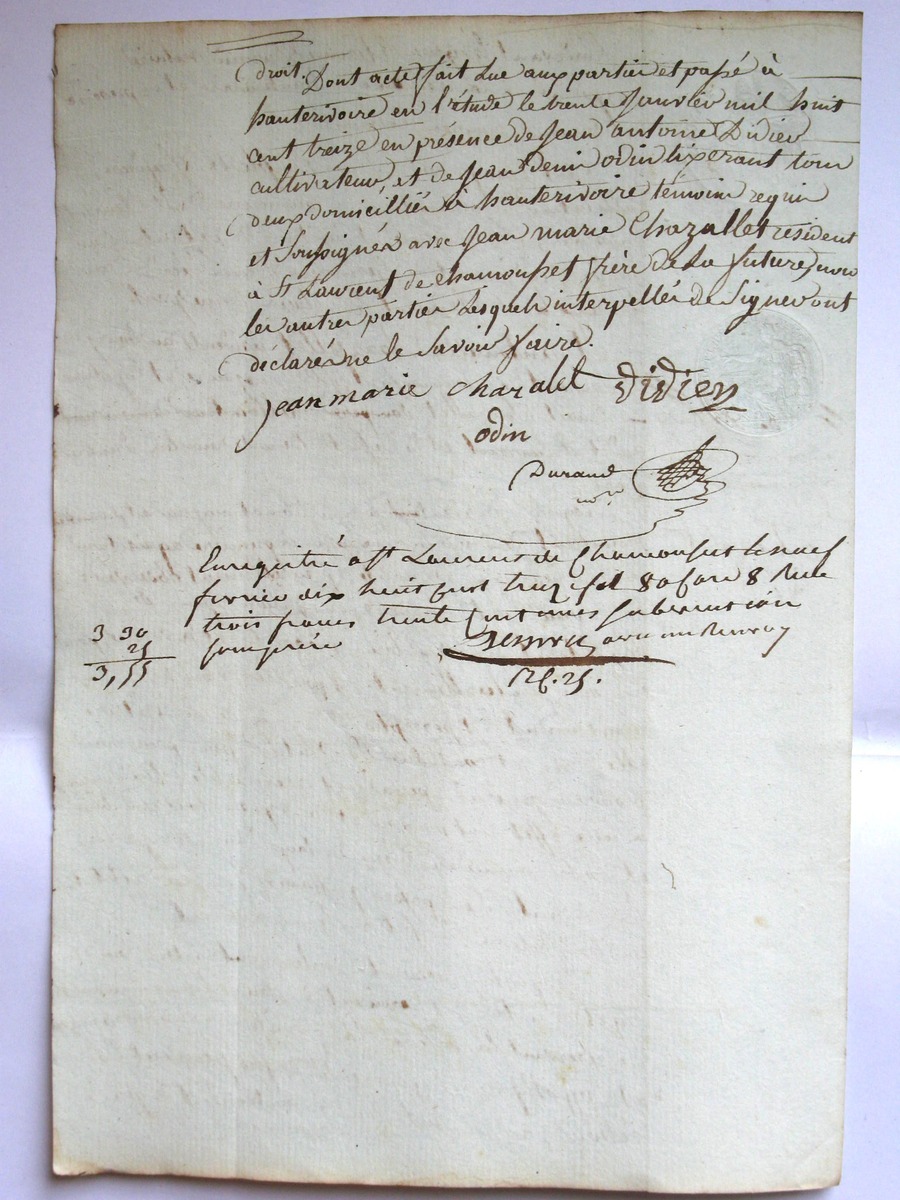 droit. Dont acte fait Lue aux partier et passé à
hauterivoire en l'étude le trente Janvier mil huit
cent treize en présence de Jean antoine Didier
cultivateur, et de Jean Denis odin tixerant tous
deux domicilliés à hauterivoire témoins requis
et Soussignés avec Jean marie Chazallet résident
à St Laurent de chamousset frère de La future, non
les autres parties Lesquels interpellés de Signer ont
déclarés ne le Savoir faire.
jean marie chazalet didier
odin
Durand
nore
Enregistré a St Laurent de Chamousset le neuf
fevrier dix huit cent treize fol 80 Case 8 Recu
trois francs trente centimes subvention
3 30
25
3,55
comprise
avec un Renvoy
25.